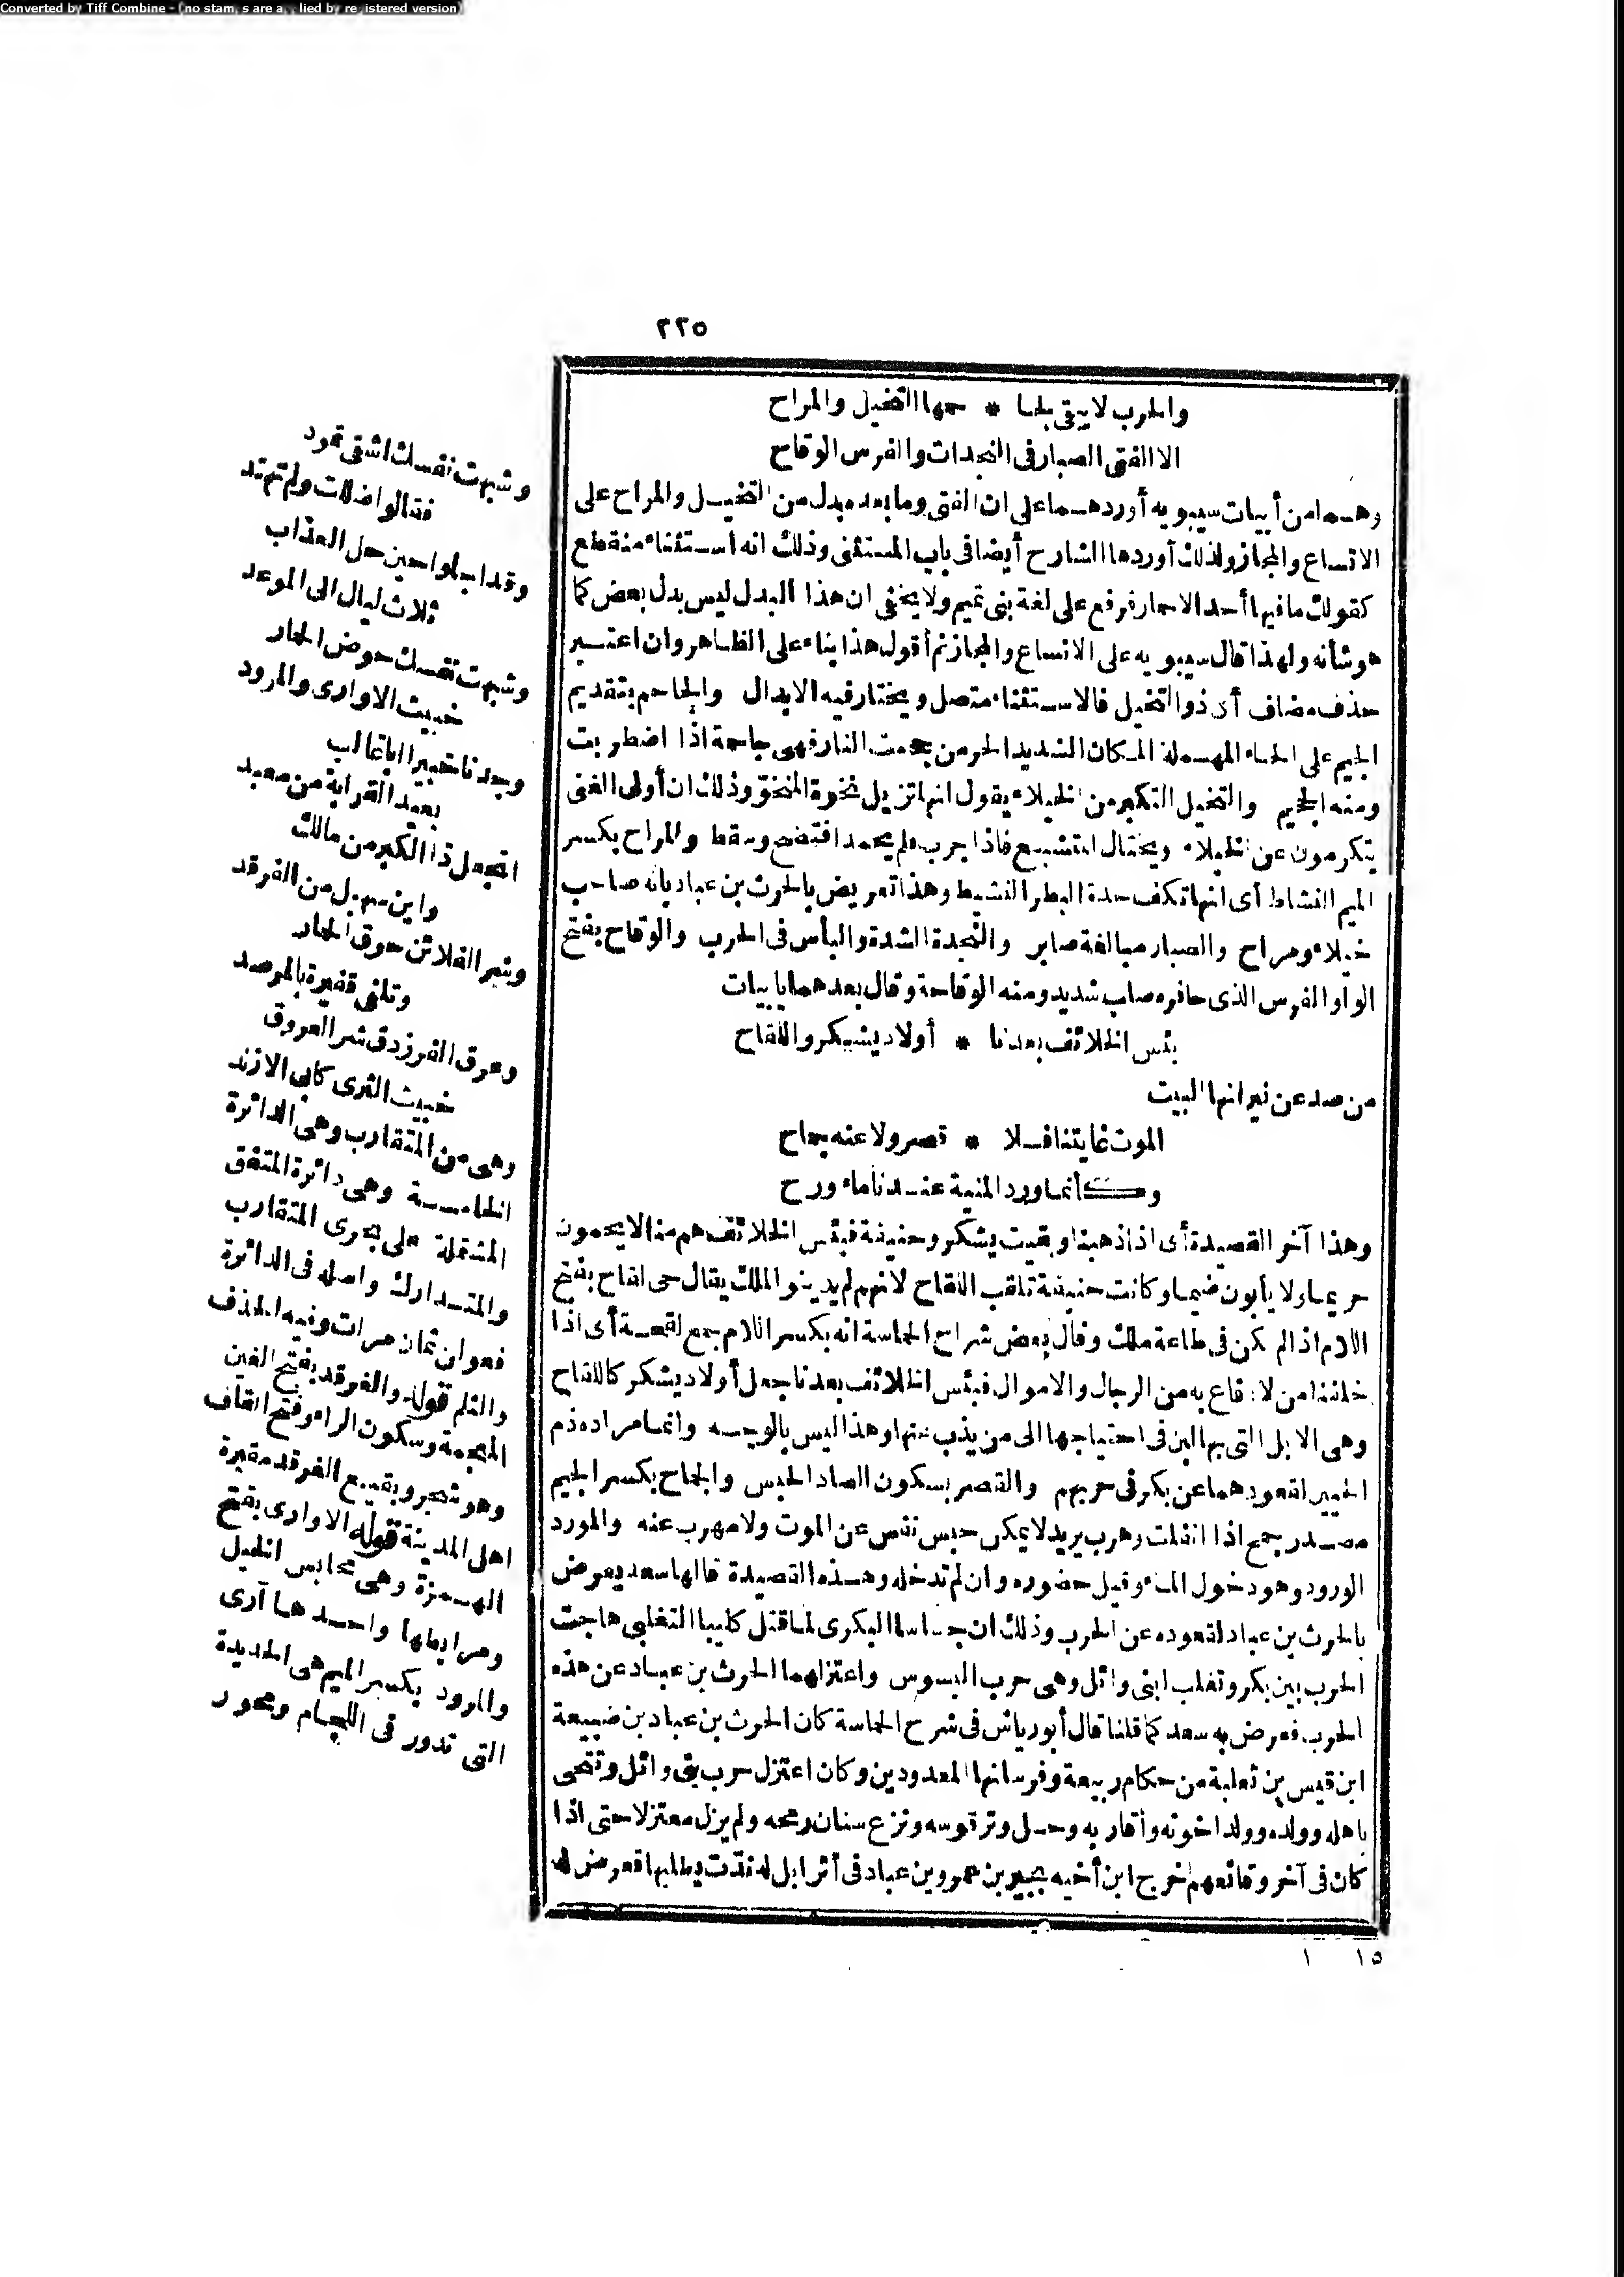 Converted by Tiff Combine - (no stamps are applied by registered version)
٢٢٥
والحرب لا يبقى لجا * حمها التخيل والمراح
الا الفتى الصبار فى النجدات والفرس الوقاح
وهـما من أبيات سيبويه أوردهـما على ان الفتى وما بعده بدل من التخيـل والمراح على
الاتساع والمجاز ولذلك أوردها الشارح أيضا فى باب المستثنى وذلك انه استثناء منقطع
كقولك ما فيها أحد الا حمار فرفع على لغة بنى تميم ولا يخفى ان هذا البدل ليس بدل بعض كما
هو شأنه ولهذا قال سيبويه على الاتساع والمجاز ثم أقول هذا بناء على الظاهر وان اعتبر
حذف مضاف أى ذوا التخيل فالاستثناء متصل ويختار فيه الابدال والجاحم بتقديم
الجيم على الحاء المهملة المكان الشديد الحر من جحمت النار فهى جاحمة اذا اضطربت
ومنه الجحيم والتخيل التكبر من الخيلاء يقول انها تزيل نخوة المنخو وذلك ان أولى الغنى
يتكرمون عن الخيلاء ويختال المتشبع فاذا جرب فلم يحمد افتضح وسقط والمراح بكسر
الميم النشاط أى انها تكف حدة البطر النشيط وهذا تعريض بالحرث بن عباد بانه صاحب
خيلاء ومراح والصبار مبالغة صابر والنجدة الشدة والبأس فى الحرب والوقاح بفتح
الواو الفرس الذى حافره صلب شديد ومنه الوقاحة وقال بعدهما بابيات
بئس الخلائف بعدنا * أولاد يشكر واللقاح
من صد عن نيرانها البيت
الموت غايتنا فلا * قصر ولا عنه جماح
وكأنما ورد المنية عندنا ماء وراح
وهذا آخر القصيدة أى اذا ذهبنا وبقيت يشكر وحنيفة فبئس الخلائف هم منا لا يحمون
حريما ولا يأبون ضيما وكانت حنيفة تلقب اللقاح لانهم لم يدينوا لملك يقال حى لقاح بفتح
اللام اذا لم يكن فى طاعة ملك وقال بعض شراح الحماسة انه بكسر اللام جمع لقحة أى اذا
خلفنا من لا دفاع به من الرجال والاموال فبئس الخلائف بعدنا جعل أولاد يشكر كاللقاح
وهى الابل التى بها لبن فى احتياجها الى من يذب عنها وهذا ليس بالوجه وانما مراده ذم
الحيين لقعودهما عن بكر فى حربهم والقصر بسكون الصاد الحبس والجماح بكسر الجيم
مصدر جمح اذا انفلت وهرب يريد لا يمكن حبس نفس عن الموت ولا مهرب عنه والمورد
الورود وهو دخول الماء وقيل حضوره وان لم تدخله وهذه القصيدة قالها سعد يعرض
بالحرث بن عباد لقعوده عن الحرب وذلك ان جساسا البكرى لما قتل كليبا التغلبى هاجت
الحرب بين بكر وتغلب ابنى وائل وهى حرب البسوس واعتزلهما الحرث بن عباد عن هذه
الحرب فعرض به سعد كما قلنا قال أبو رياش فى شرح الحماسة كان الحرث بن عباد بن ضبيعة
ابن قيس بن ثعلبة من حكام ربيعة وفرسانها المعدودين وكان اعتزل حرب بنى وائل وتنحى
باهله وولده وولد اخوته وأقاربه وحل وتر قوسه ونزع سنان رمحه ولم يزل معتزلا حتى اذا
كان فى آخر وقائعهم خرج ابن أخيه بجير بن عمرو بن عباد فى أثر ابل له ندت يطلبها فعرض له
١٥ ١
وشبهت نفسك اشقى ثمود
فقالوا ضللت ولم تهتد
وقد اجلوا حين حل العذاب
ثلاث ليال الى الموعد
وشبهت نفسك حوض الحمار
خبيث الاوارى والمرود
وجدنا جبيرا ابا غالب
بعيد القرابة من معبد
اتجعل ذا الكير من مالك
واين سهيل من الفرقد
وشر الفلا ثن حوق الحمار
وتلقى قفيرة بالمرصد
وعرق الفرزدق شر العروق
خبيث الثرى كابى الازند
وهى من المتقارب وهى الدائرة
الخامسة وهى دائرة المتفق
المشتملة على بحرى المتقارب
والمتدارك واصله فى الدائرة
فعولن ثمان مرات وفيه الحذف
والثلم قوله والغرقد بفتح الغين
المعجمة وسكون الراء وفتح القاف
وهو شجر وبقيع الغرقد مقبرة
اهل المدينة قوله الاوارى بفتح
الهمزة وهى محابس الخيل
ومرابطها واحدها آرى
والمرود بكسر الميم هى الحديدة
التى تدور فى اللجام ومحور